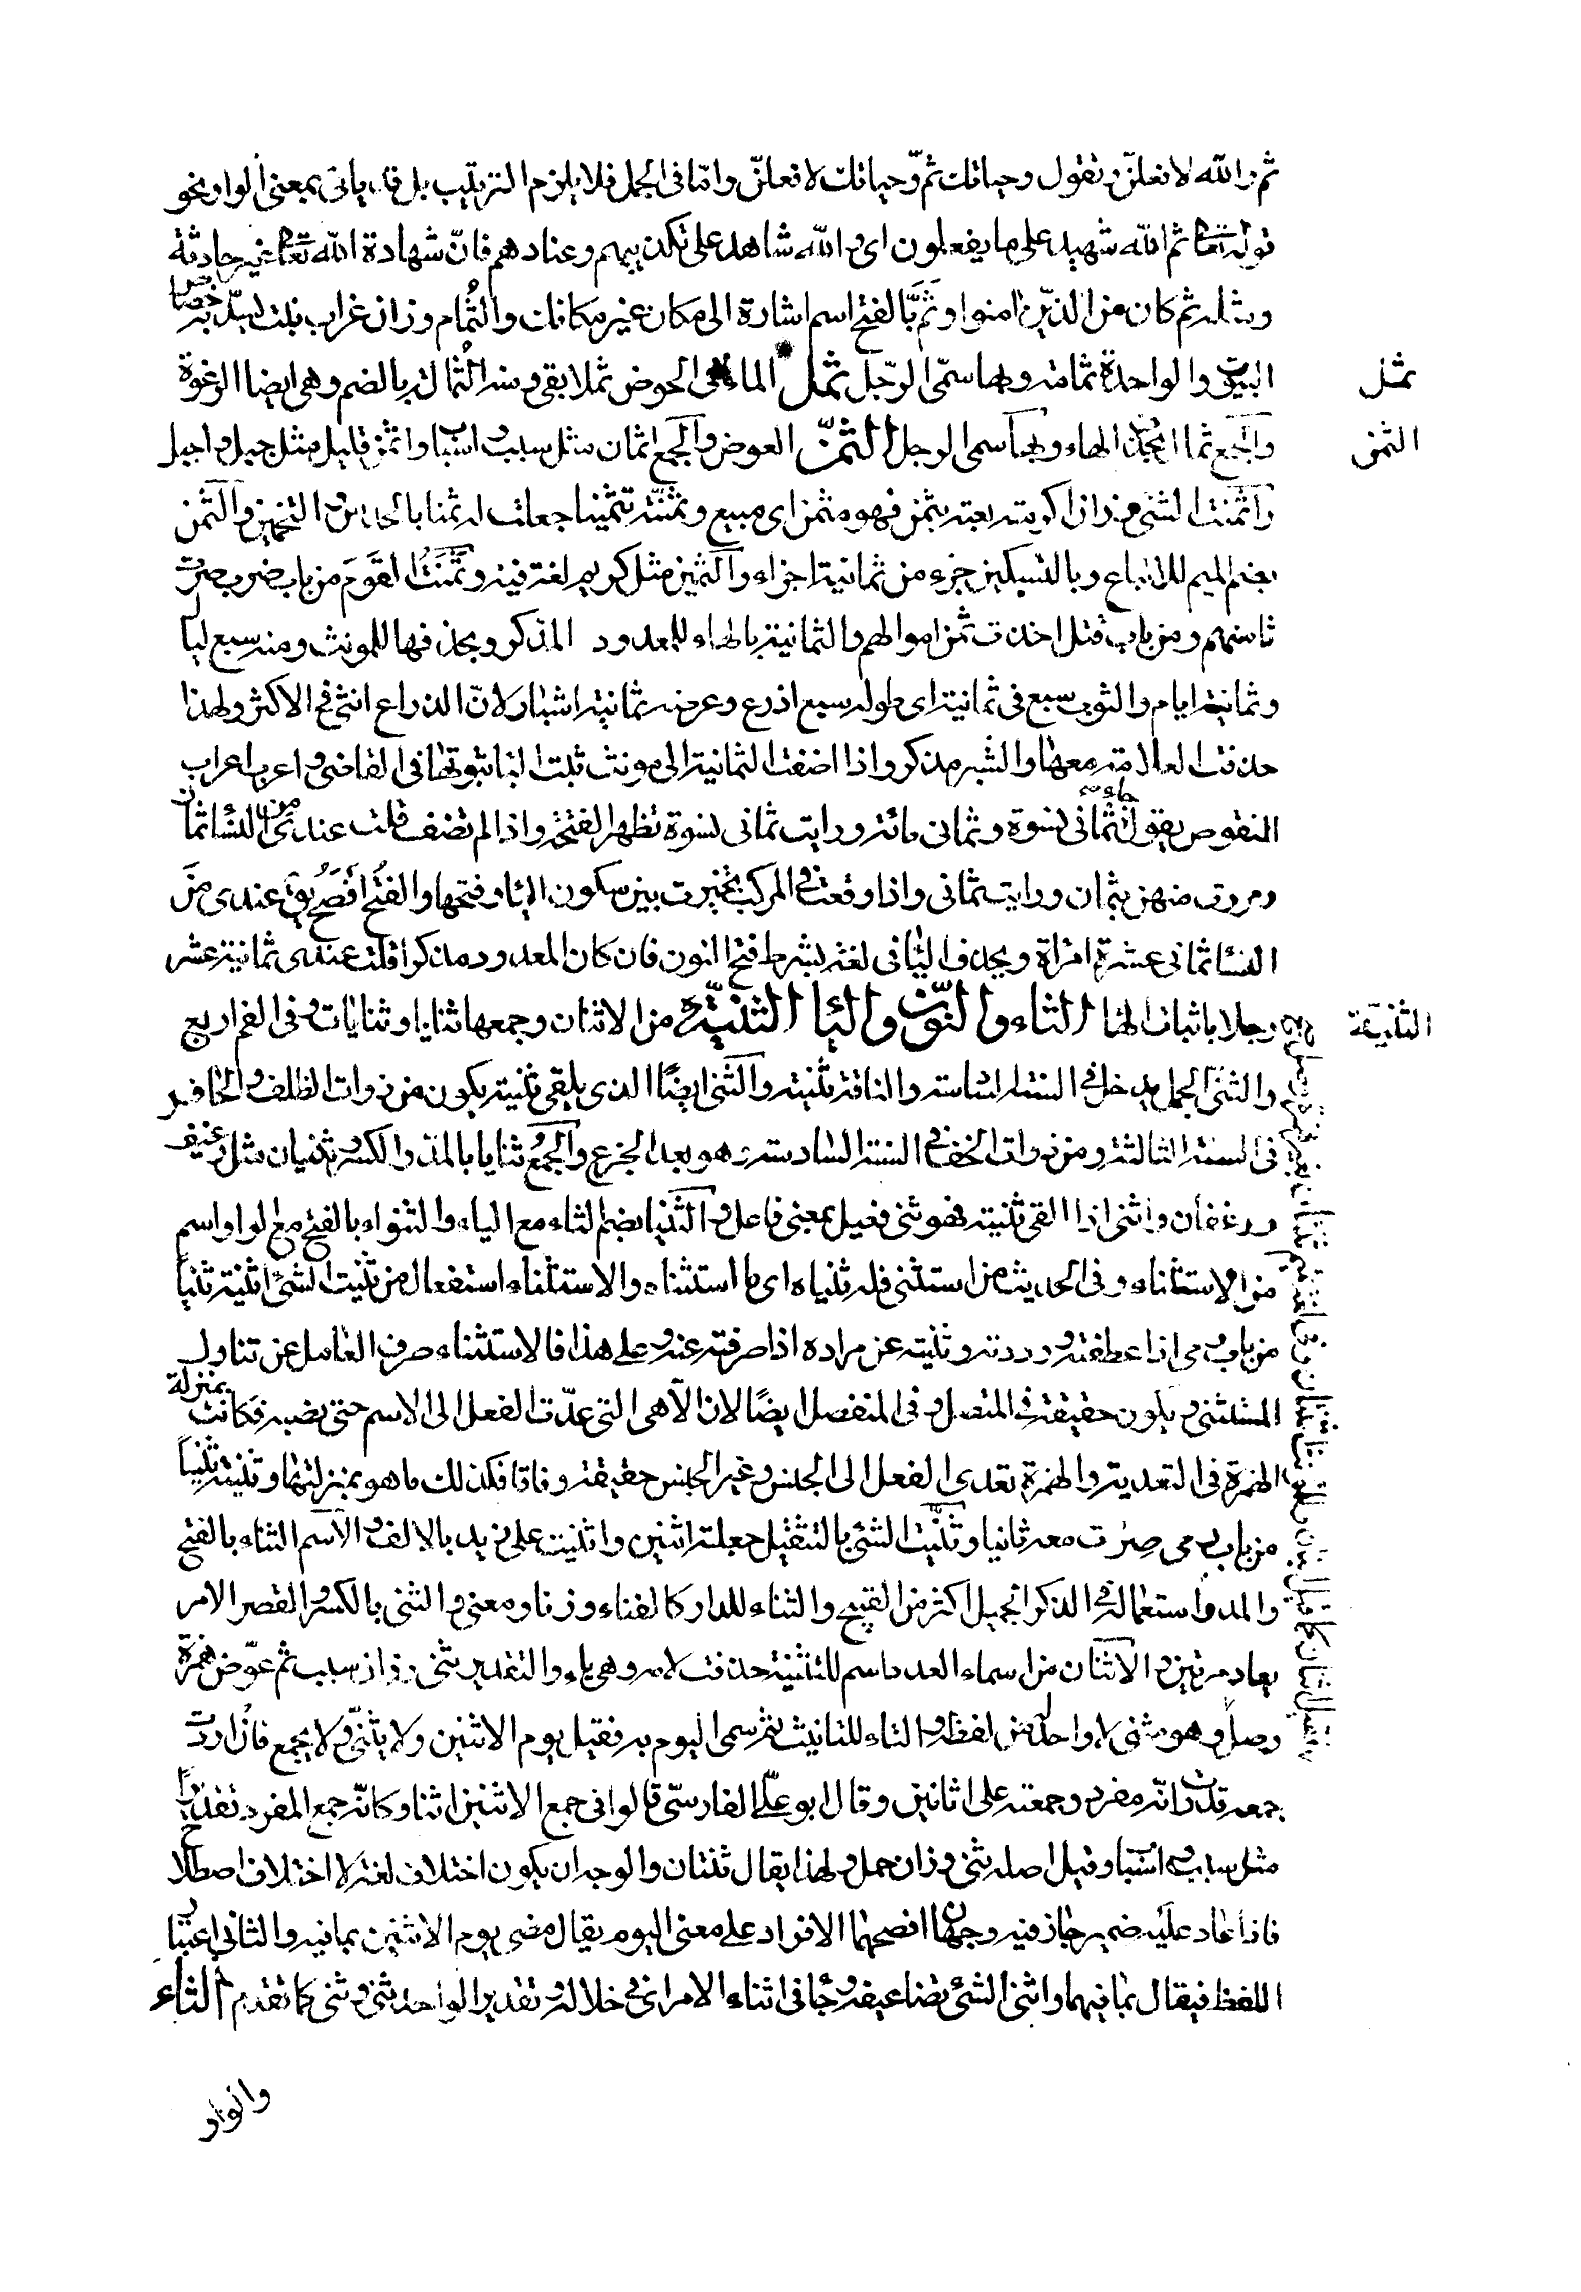 ثم والله لافعلنّ وتقول وحياتك ثمّ وحياتك لافعلنّ وامّا فى الجمل فلا يلزم الترتيب بل قد ياتى بمعنى الواو نحو
قوله تعا ثم الله شهيد على ما يفعلون اى والله شاهد على تكذيبهم وعنادهم فانّ شهادة الله تعا غير حادثة
ومثله ثم كان من الذين امنوا وثَمَّ بالفتح اسم اشارة الى مكان غير مكانك والثُمام وزان غراب نبت يسدّ به خصاص
البيوت والواحدة ثمامة وبها سمّى الرّجل ثمل الماء فى الحوض ثملا بقى ومنه الثُمالة بالضم وهى ايضا الرغوة
ثمل
والجمع ثمال بحذف الهاء وبها سمى الرجل الثمنّ العوض والجمع اثمان مثل سبب واسباب واثمن قليل مثل جبل واجبل
الثمن
واثمنت الشئ وزان اكرمته بعته بثمن فهو مثمن اى مبيع وثمّنته تثمينا جعلت له ثمنا بالحدس والتخمين والثمن
بضم الميم للاتباع وبالتسكين جزء من ثمانية اجزاء والثمين مثل كريم لغة فيه وثَمَنْتُ القَومَ من باب ضرب صرت
ثامنهم ومن باب قتل اخذت ثمن اموالهم والثمانية بالهاء للمعدود المذكر وبحذفها للمونث ومنه سبع ليال
وثمانية ايام والثوب سبع فى ثمانية اى طوله سبع اذرع وعرضه ثمانية اشبار لانّ الذراع انثى فى الاكثر ولهذا
حذفت العلامة معها والشبر مذكر واذا اضفت الثمانية الى مونث ثبتت اليا ثبوتها فى القاضى واعرب اعراب
المنقوص يقول جاء ثمانى نسوة وثمانى مائة ورايت ثمانى نسوة تظهر الفتحة واذا لم تضف قلت عندى من النسا ثمان
ومررت منهن بثمان ورايت ثمانى واذا وقعت فى المركب تخيرت بين سكون اليا وفتحها والفتح افصح يق عندى من
النسا ثمانى عشرة امراة ويحذف اليا فى لغة بشرط فتح النون فان كان المعدود مذكرا قلت عندى ثمانية عشر
رجلا باثبات الها الثاء والنون واليا الثنيّه من الاثنان وجمعها ثنايا وثنايات وفى الفم اربع
الثنيّة
والثنى الجمل يدخل فى السنة السادسة والناقة ثنية والثنى ايضًا الذى يلقى ثنيته يكون من ذوات الظلف والحافر
فى السنة الثالثة ومن ذوات الخف فى السنة السادسة وهو بعد الجزع والجمع ثنايا بالمد والكسر وثنيان مثل رغيف
ورغفان واثنى اذا القى ثنيته فهو ثنى فعيل بمعنى فاعل والثنيا بضم الثاء مع الياء والثنواء بالفتح مع الواو اسم
من الاستثناء وفى الحديث من استثنى فله ثنياه اى ما استثناه والاستثناء استفعال من ثنيت الشئ اثنيه ثنيا
من باب رمى اذا عطفته ورددته وثنيته عن مراده اذا صرفته عنه وعلى هذا فالاستثناء صرف العامل عن تناول
المستثنى ويكون حقيقة فى المتصل وفى المنفصل ايضًا لان الا هى التى عدّت الفعل الى الاسم حتى نصبه فكانت بمنزلة
الهمزة فى التعدية والهمزة تعدى الفعل الى الجنس وغير الجنس حقيقة وفاقا فكذلك ما هو بمنزلتها وثنيته ثنيا
من باب رمى صرت معه ثانيا وثنّيت الشئ بالتثقيل جعلته اثنين واثنيت على زيد بالالف والاسم الثناء بالفتح
والمد واستعماله فى الذكر الجميل اكثر من القبيح والثناء للدار كالفناء وزنا ومعنى والثنى بالكسر والقصر الامر
يعاد مرتين والاثنان من اسماء العدد اسم للتثنية حذفت لامه وهى ياء والتقدير ثنى وزان سبب ثم عوّض همزة
وصل وهو مثنى لا واحد له من لفظه والتاء للتانيث ثم سمى اليوم به فقيل يوم الاثنين ولا يثنى ولا يجمع فان اردت
جمعه قدرت انّه مفرد وجمعته على اثانين وقال ابو علىّ الفارسىّ قالوا فى جمع الاثنين اثنا وكانّه جمع المفرد تقديرًا
مثل سبب واسباب وقيل اصله ثنى وزان حمل ولهذا يقال ثنتان والوجه ان يكون اختلاف لغة لا اختلاف اصطلاح
فاذا عاد عليه ضمير جاز فيه وجهان افصحهما الافراد على معنى اليوم يقال مضى يوم الاثنين بما فيه والثانى اعتبار
اللفظ فيقال بما فيهما واثنى الشئ تضاعيفه وجا فى اثناء الامر اى فى خلاله وتقدير الواحد ثنى وثنى كما تقدم الثاء
والواو